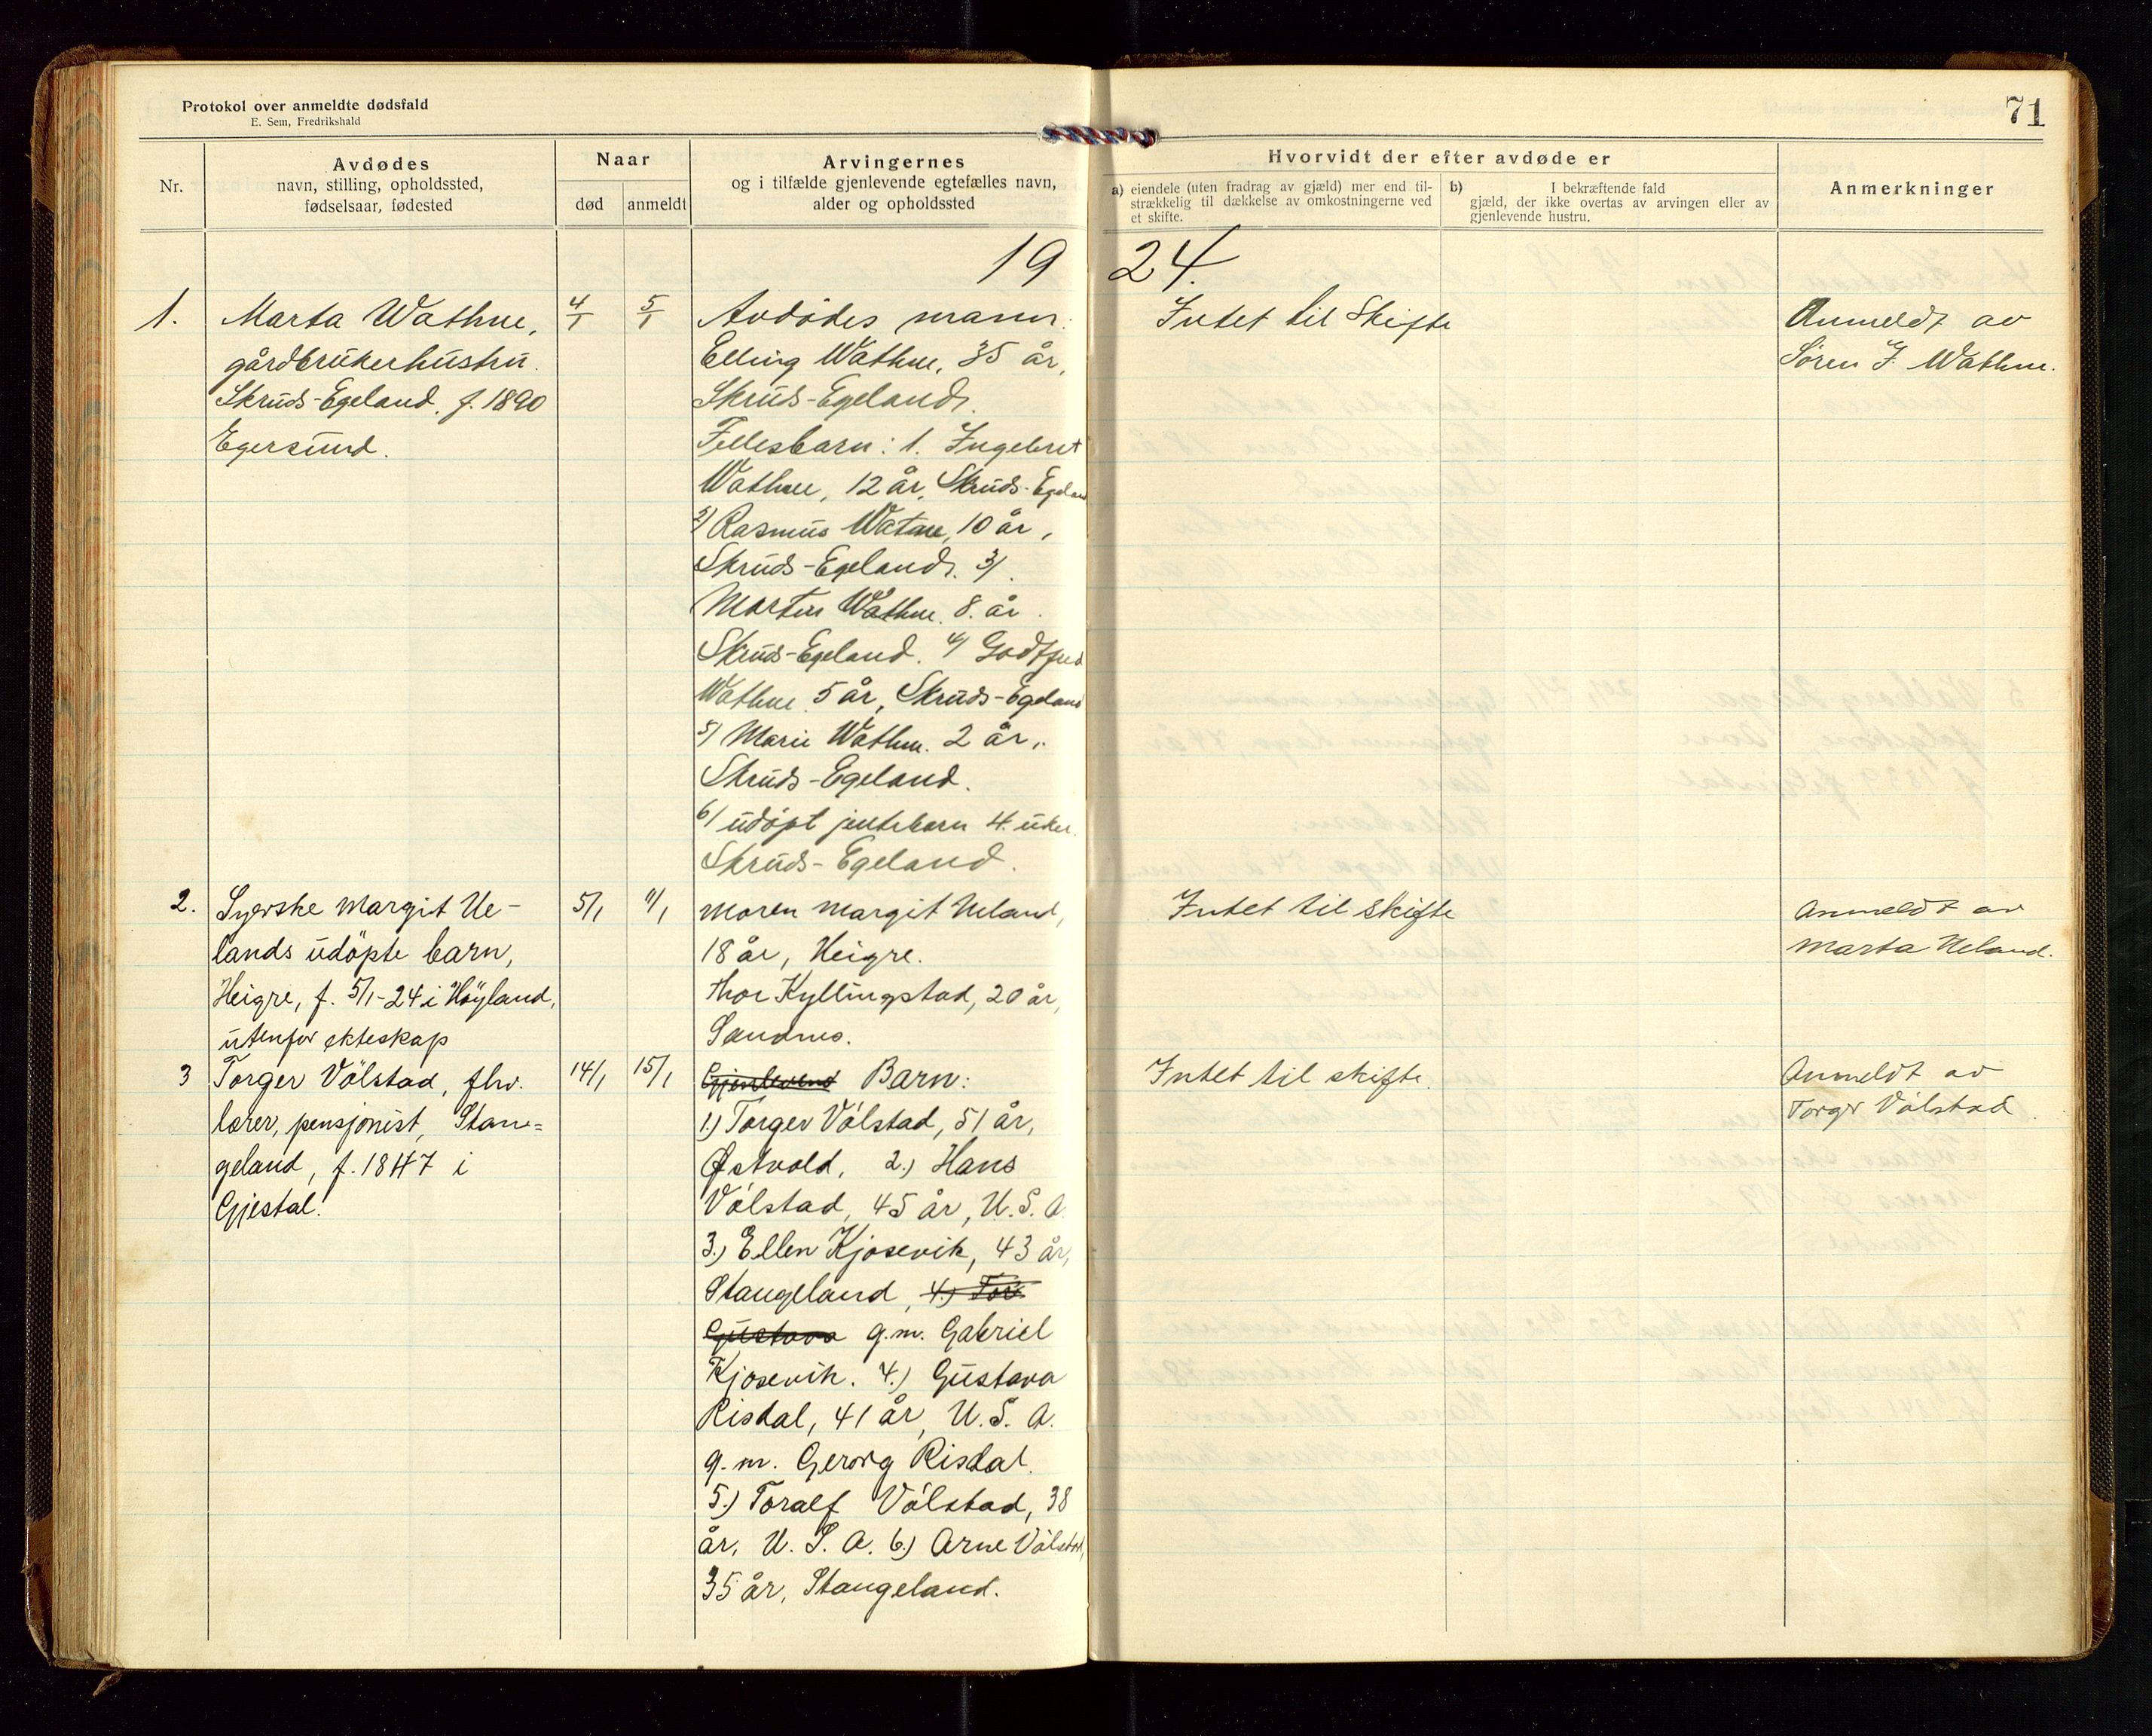 Protokol over anmeldte dødsfald
E. Sem, Fredrikshald
71
Nr.
Avdødes
navn, stilling, opholdssted,
fødselsaar, fødested
Naar
død
anmeldt
Arvingernes
og i tilfælde gjenlevende egtefælles navn,
alder og opholdssted
Hvorvidt der efter avdøde er
a) eiendele (uten fradrag av gjæld) mer end til-
strækkelig til dækkelse av omkostningerne ved
et skifte.
b) I bekræftende fald
gjæld, der ikke overtas av arvingen eller av
gjenlevende hustru.
Anmerkninger
19 24.
1.
Marta Wathne,
gårdbrukerhustru.
Skruds-Egeland, f. 1890
Egersund.
4/1
5/1
Avdødes mann:
Elling Wathne, 35 år,
Skruds-Egeland.
Fellesbarn: 1. Ingebret
Wathne, 12 år, Skruds-Egeland
2/ Rasmus Watne, 10 år,
Skruds-Egeland. 3/
Martin Wathne. 8. år.
Skruds-Egeland. 4/ Godtfred
Wathne 5 år, Skruds-Egeland
5/ Marie Wathne. 2 år,
Skruds-Egeland.
6/ udøpt jentebarn 4. uker.
Skruds-Egeland.
Intet til Skifte
Anmeldt av
Søren J. Wathne.
2.
Syerske Margit Ue-
lands udøpte barn,
Heigre, f. 5/1-24 i Høyland,
utenfor ekteskap
5/1
11/1
Moren Margit Ueland,
18 år, Heigre.
Thor Kyllingstad, 20 år,
Sandnes.
Intet til skifte
Anmeldt av
Marta Ueland.
3
Torger Vølstad, fhv.
lærer, pensjonist, Stan=
geland, f. 1847 i
Gjestal.
14/1
15/1
Gjenlevend Barn:
1.) Torger Vølstad, 51 år,
Østvold, 2.) Hans
Vølstad, 45 år, U.S.A
3.) Ellen Kjosevik, 43 år,
Stangeland, 4.) Tor
Gustava g.m. Gabriel
Kjosevik. 4.) Gustava
Risdal, 41 år, U.S.A.
g.m. Gerorg Risdal.
5.) Toralf Vølstad, 38
år, U.S.A. 6.) Arne Vølstad,
35 år, Stangeland.
Intet til skifte.
Anmeldt av
Torger Vølstad.